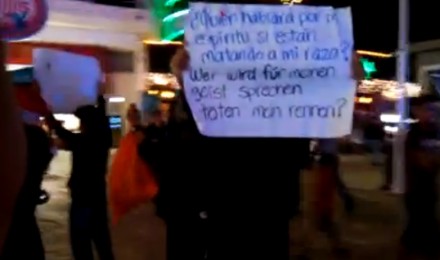 ¿Quién hablará por mi
espíritu si están
matando a mi raza?
Wer wird für meinen
geist sprechen
töten men rennen?